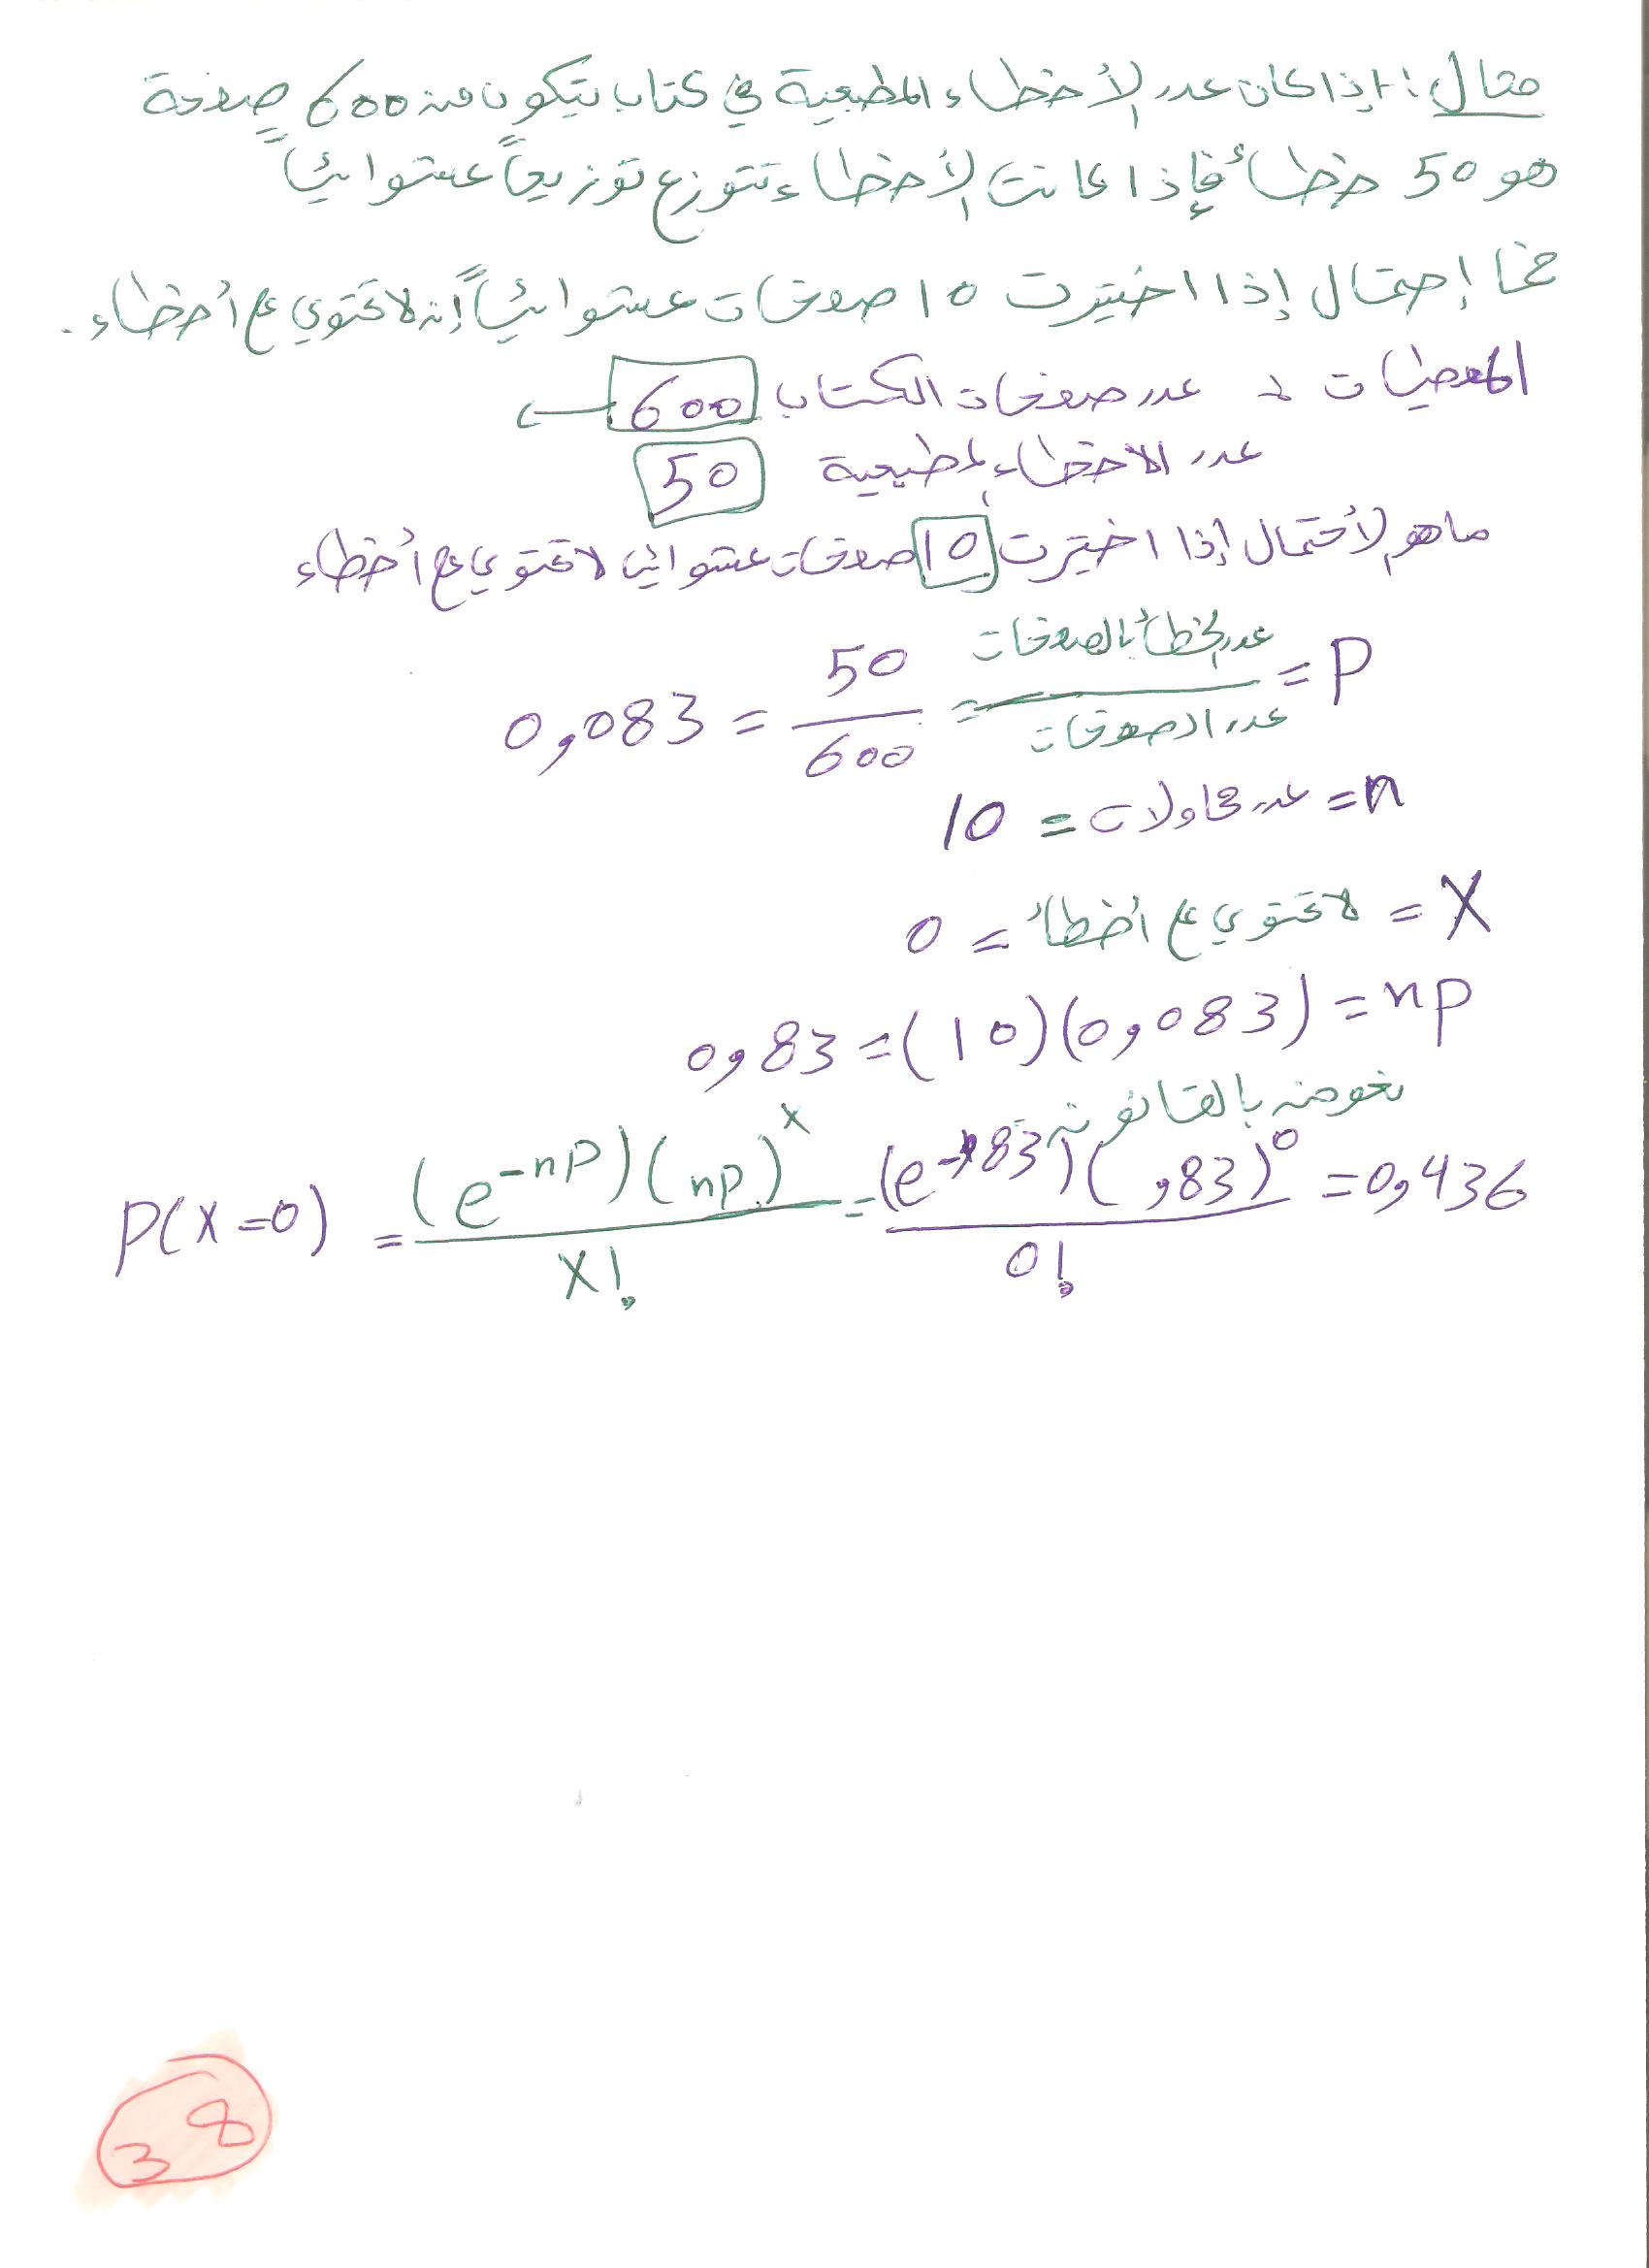 مثال :- إذا كان عدد الأخطاء المطبعية في كتاب يتكون من 600 صفحة
هو 50 خطأ فإذا كانت الأخطاء تتوزع توزيعاً عشوائياً
فما إحتمال إذا اختيرت 10 صفحات عشوائياً إنه لا تحتوي على أخطاء .
المعطيات عدد صفحات الكتاب 600
عدد الاخطاء المطبعية 50
ماهو لأحتمال إذا اختيرت 10 صفحات عشوائياً لا تحتوي على أخطاء
P = عدد الخطأ بالصفحات / عدد الصفحات = 50 / 600 = 0,083
n = عدد محاولات = 10
X = لا تحتوي على أخطاء = 0
np = (0,083)(10) = 0,83
نعوض بالقانون
P(X=0) = (e^-np)(np)^x / X! = (e^-,83)(,83)^0 / 0! = 0,436
38